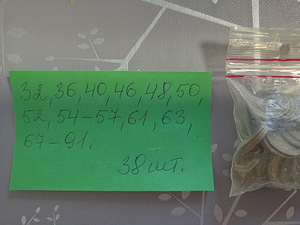 32, 36, 40, 46, 48, 50,
52, 54-57, 61, 63,
67-91.
38 шт.